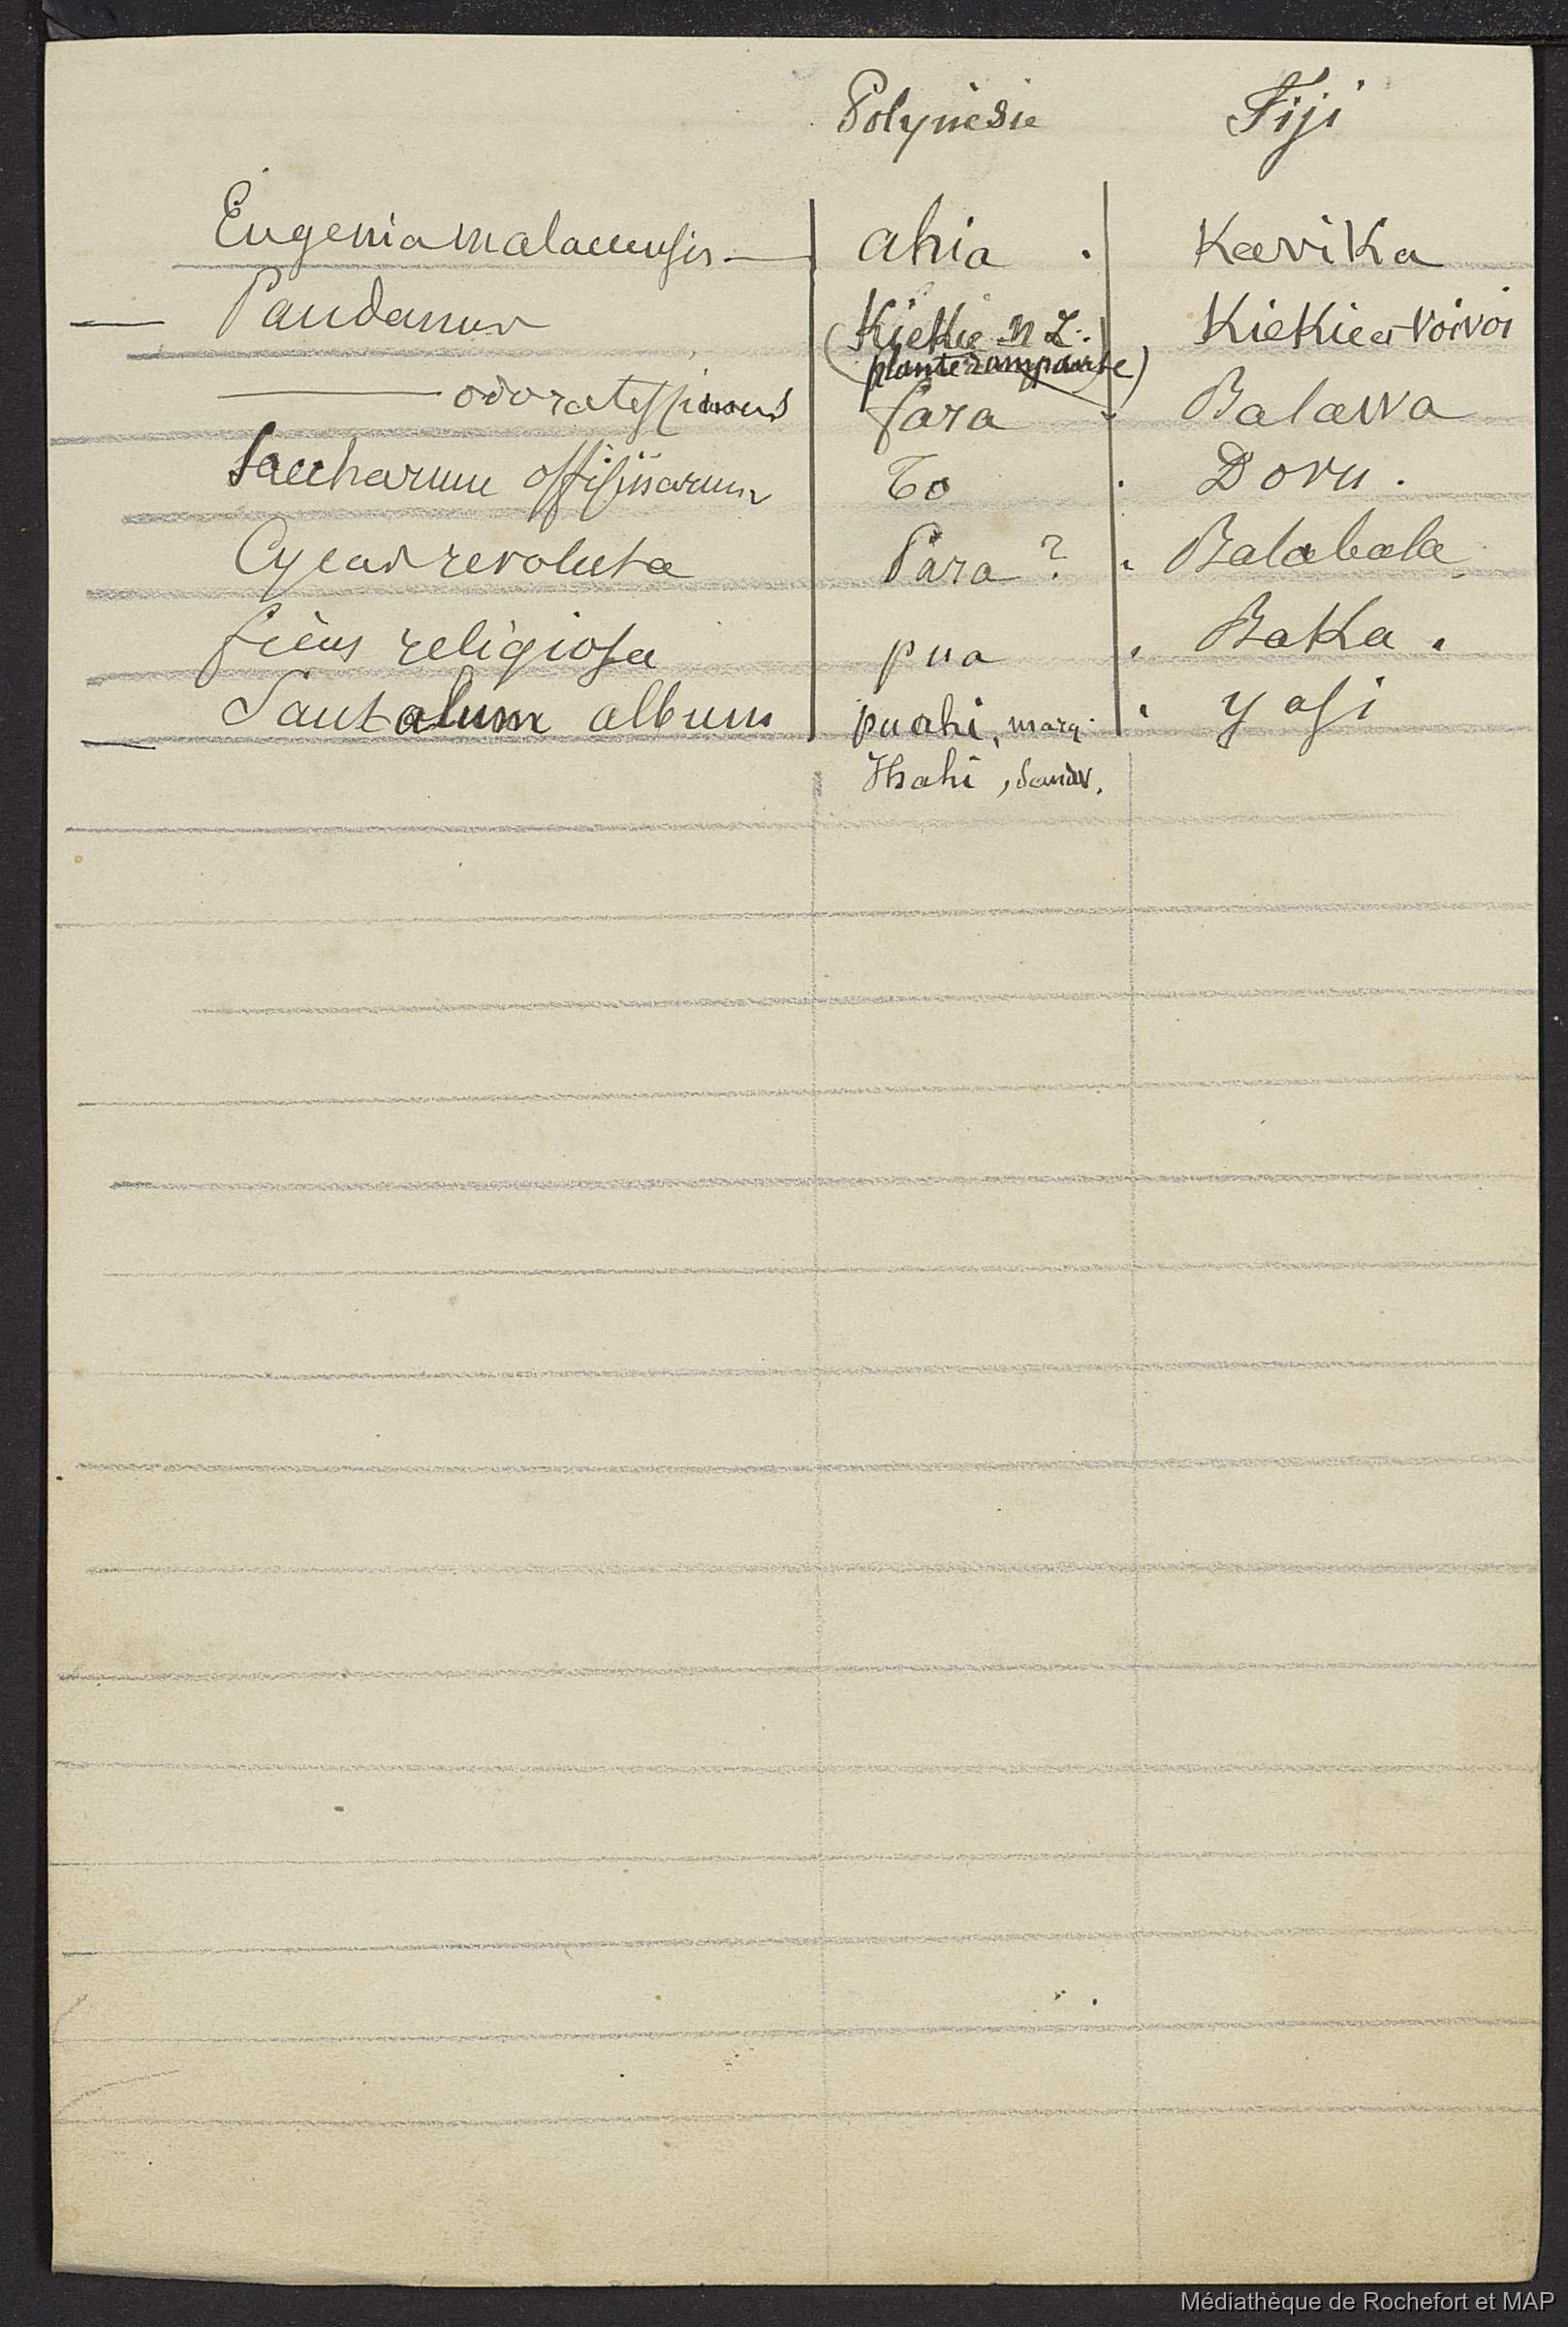 Polynésie Fiji
Eugenia malaccensis — ahia . Kavika
— Pandanus (Kiekie N Z.) Kiekie et Voivoi
plante rampante)
— odoratissimus fara . Balawa
Saccharum offisinarum To . Dovu .
Cycas revoluta Para ? . Balabala
ficus religiosa pua . Baka .
Santalum album puahi, marq. . yasi
Ihahi, Sandw.
Médiathèque de Rochefort et MAP